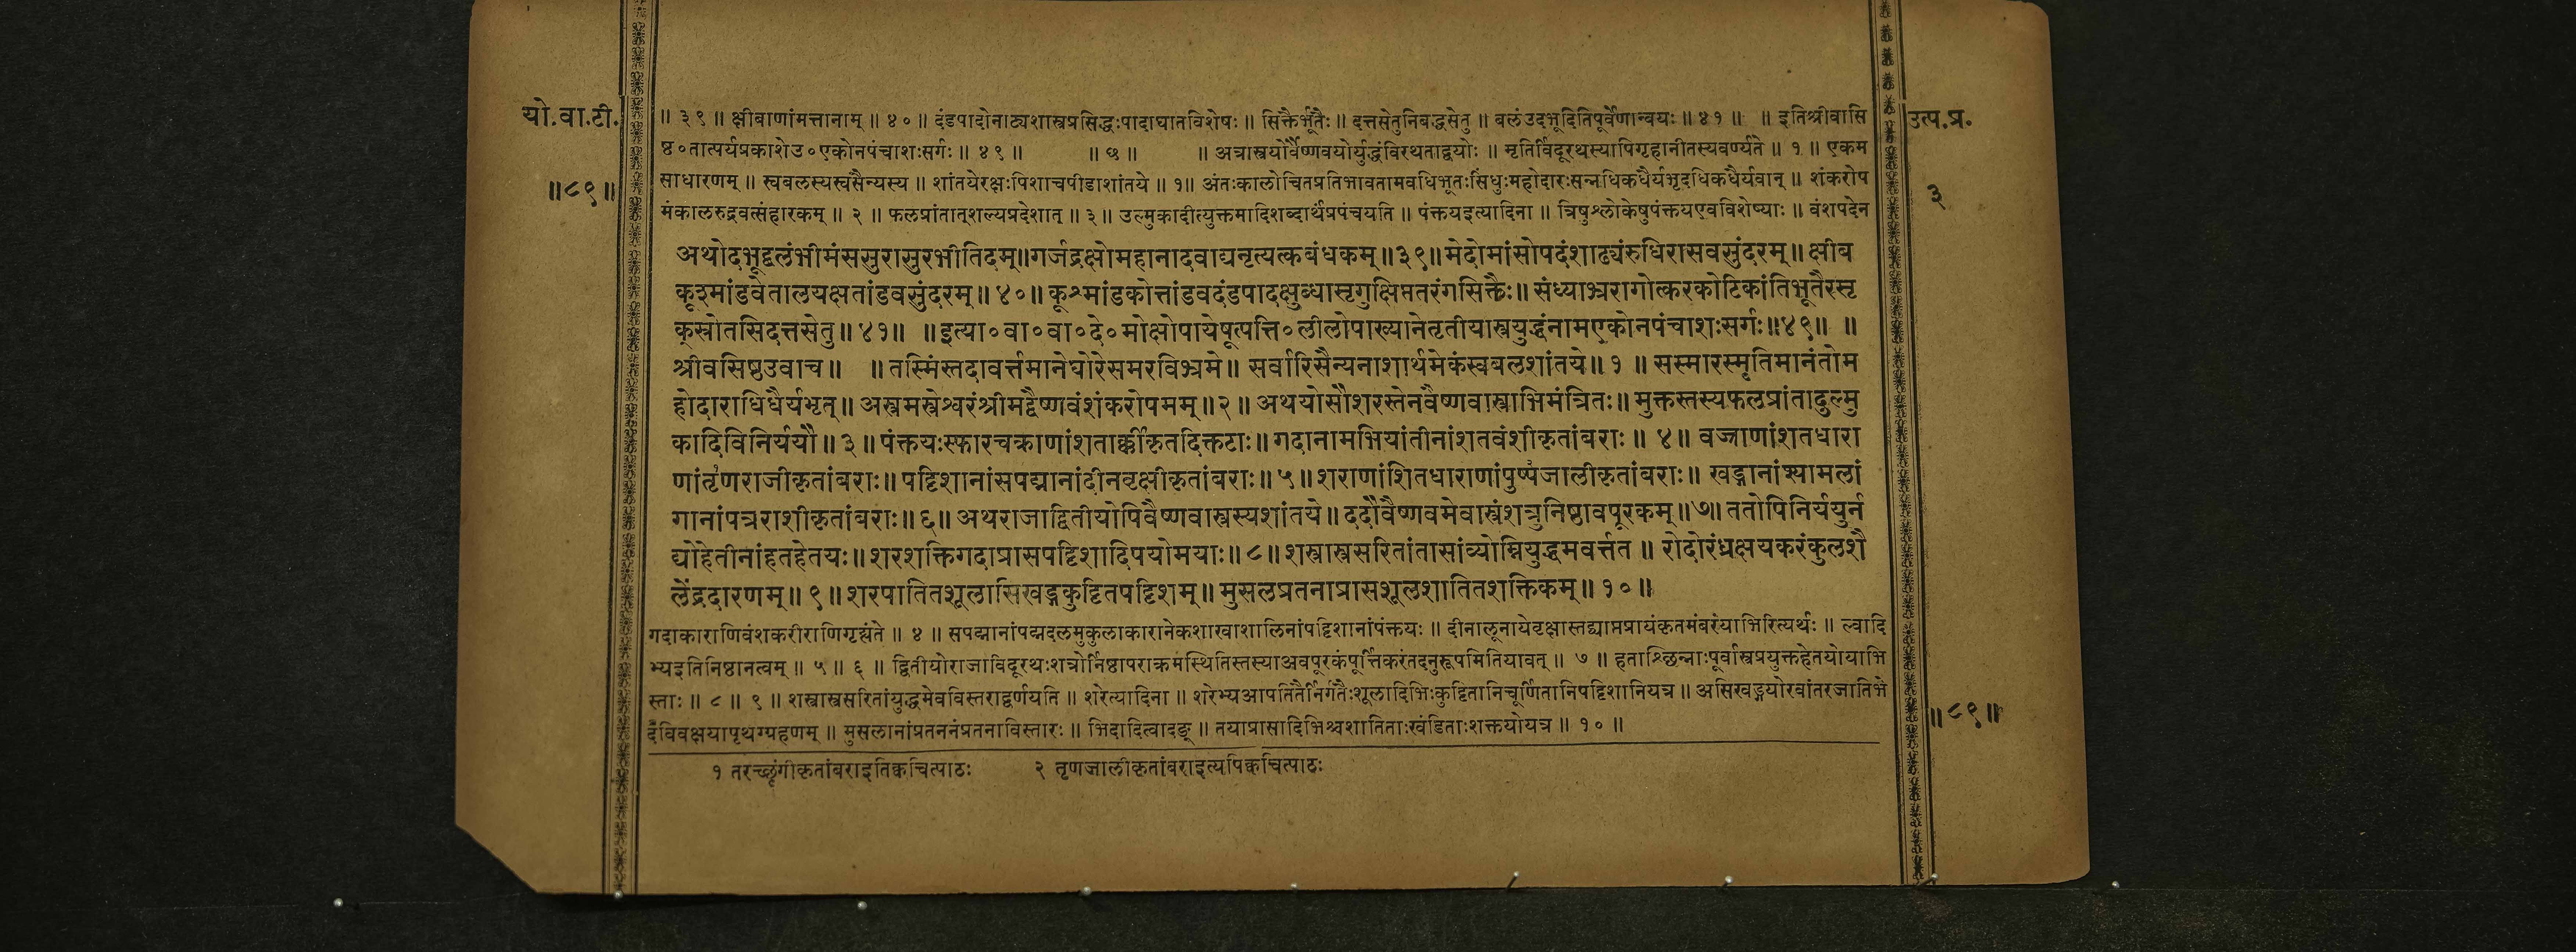 यो.वा.टी.
॥८९॥
उत्प.प्र.
३
॥ ३९ ॥ क्षीबाणांमत्तानाम् ॥ ४० ॥ दंडपादोनाट्यशास्त्रप्रसिद्धःपादाघातविशेषः ॥ सिक्तैर्भूतैः ॥ दत्तसेतुनिबद्धसेतु ॥ बलंउदभूदितिपूर्वेणान्वयः ॥ ४१ ॥ ॥ इतिश्रीवासि
ष्ठ०तात्पर्यप्रकाशेउ०एकोनपंचाशःसर्गः ॥ ४९ ॥ ॥ छ ॥ ॥ अत्रास्त्रयोर्वैष्णवयोर्युद्धंविरथताद्वयोः ॥ मृतिर्विदूरथस्यापिगृहानीतस्यवर्ण्यते ॥ १ ॥ एकम
साधारणम् ॥ स्वबलस्यस्वसैन्यस्य ॥ शांतयेरक्षःपिशाचपीडाशांतये ॥ १॥ अंतःकालोचितप्रतिभावतामवधिभूतःसिंधुःमहोदारःसन्नधिकधैर्यभृदधिकधैर्यवान् ॥ शंकरोप
मंकालरुद्रवत्संहारकम् ॥ २ ॥ फलप्रांतात्शल्यप्रदेशात् ॥ ३ ॥ उल्मुकादीत्युक्तमादिशब्दार्थंप्रपंचयति ॥ पंक्तयइत्यादिना ॥ त्रिषुश्लोकेषुपंक्तयएवविशेष्याः ॥ वंशपदेन
अथोदभूद्बलंभीमंससुरासुरभीतिदम्॥गर्जद्रक्षोमहानादवाद्यनृत्यत्कबंधकम्॥३९॥मेदोमांसोपदंशाढ्यंरुधिरासवसुंदरम्॥क्षीब
कूश्मांडवेतालयक्षतांडवसुंदरम्॥ ४० ॥ कूश्मांडकोत्तांडवदंडपादक्षुब्धासृगुक्षिप्ततरंगसिक्तैः॥ संध्याभ्ररागोत्करकोटिकांतिभूतैरसृ
क्स्रोतसिदत्तसेतु॥ ४१॥ ॥इत्या०वा०वा०दे०मोक्षोपायेषूत्पत्ति०लीलोपाख्यानेतृतीयास्त्रयुद्धंनामएकोनपंचाशःसर्गः॥४९॥ ॥
श्रीवसिष्ठउवाच॥ ॥ तस्मिंस्तदावर्त्तमानेघोरेसमरविभ्रमे॥ सर्वारिसैन्यनाशार्थमेकंस्वबलशांतये॥ १ ॥ सस्मारस्मृतिमानंतोम
होदाराधिधैर्यभृत्॥ अस्त्रमस्त्रेश्वरंश्रीमद्वैष्णवंशंकरोपमम्॥२॥ अथयोसौशरस्तेनवैष्णवास्त्राभिमंत्रितः॥ मुक्तस्तस्यफलप्रांतादुल्मु
कादिविनिर्ययौ॥ ३॥ पंक्तयःस्फारचक्राणांशतार्कीकृतदिक्तटाः॥ गदानामभियांतीनांशतवंशीकृतांबराः॥ ४॥ वज्राणांशतधारा
णांतृणराजीकृतांबराः॥ पट्टिशानांसपद्मानांदीनवृक्षीकृतांबराः॥५॥शराणांशितधाराणांपुष्पजालीकृतांबराः॥ खड्गानांश्यामलां
गानांपत्रराशीकृतांबराः॥६॥अथराजाद्वितीयोपिवैष्णवास्त्रस्यशांतये॥ ददौवैष्णवमेवास्त्रंशत्रुनिष्ठावपूरकम्॥७॥ततोपिनिर्ययुर्न
द्योहेतीनांहतहेतयः॥शरशक्तिगदाप्रासपट्टिशादिपयोमयाः॥८॥शस्त्रास्त्रसरितांतासांव्योम्नियुद्धमवर्त्तत॥ रोदोरंध्रक्षयकरंकुलशै
लेंद्रदारणम्॥ ९॥शरपातितशूलासिखड्गकुट्टितपट्टिशम्॥मुसलप्रतनाप्रासशूलशातितशक्तिकम्॥ १०॥
गदाकाराणिवंशकरीराणिगृह्यंते ॥ ४ ॥ सपद्मानांपद्मदलमुकुलाकारानेकशाखाशालिनांपट्टिशानांपंक्तयः ॥ दीनालूनायेवृक्षास्तद्व्याप्तप्रायंकृतमंबरंयाभिरित्यर्थः ॥ ल्वादि
भ्यइतिनिष्ठानत्वम् ॥ ५ ॥ ६ ॥ द्वितीयोराजाविदूरथःशत्रोर्निष्ठापराक्रमस्थितिस्तस्याअवपूरकंपूर्त्तिकरंतदनुरूपमितियावत् ॥ ७ ॥ हताश्छिन्नाःपूर्वास्त्रप्रयुक्तहेतयोयाभि
स्ताः ॥ ८ ॥ ९ ॥ शस्त्रास्त्रसरितांयुद्धमेवविस्तराद्वर्णयति ॥ शरेत्यादिना ॥ शरेभ्यआपतितैर्निर्गतैःशूलादिभिःकुट्टितानिचूर्णितानिपट्टिशानियत्र ॥ असिखड्गयोरवांतरजातिभे
दविवक्षयापृथग्ग्रहणम् ॥ मुसलानांप्रतननंप्रतनाविस्तारः ॥ भिदादित्वादङ् ॥ तयाप्रासादिभिश्चशातिताःखंडिताःशक्तयोयत्र ॥ १० ॥
॥८९॥
१ तरच्छृंगीकृतांबराइतिक्वचित्पाठः २ तृणजालीकृतांबराइत्यपिक्वचित्पाठः